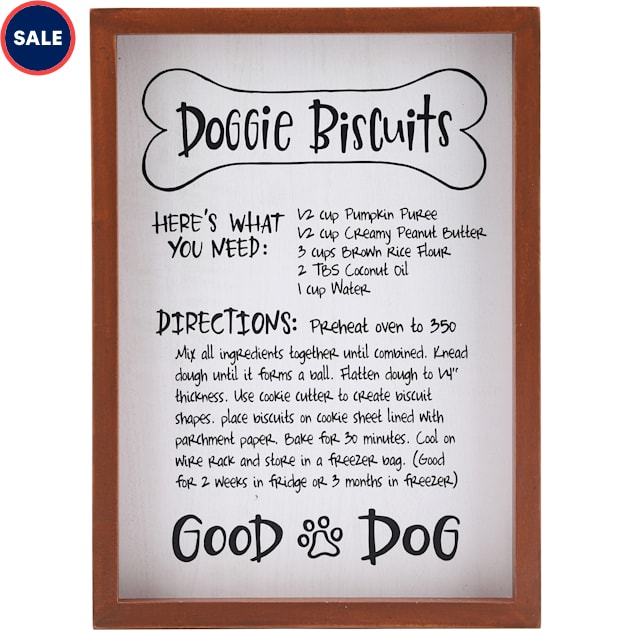 SALE
Doggie Biscuits
Here's what
you need:
1/2 cup Pumpkin Puree
1/2 cup Creamy Peanut Butter
3 cups Brown Rice Flour
2 TBS Coconut Oil
1 cup Water
Directions: Preheat oven to 350
Mix all ingredients together until combined. Knead
dough until it forms a ball. Flatten dough to 1/4"
thickness. Use cookie cutter to create biscuit
shapes. place biscuits on cookie sheet lined with
parchment paper. Bake for 30 minutes. Cool on
wire rack and store in a freezer bag. (Good
for 2 weeks in fridge or 3 months in freezer)
Good Dog